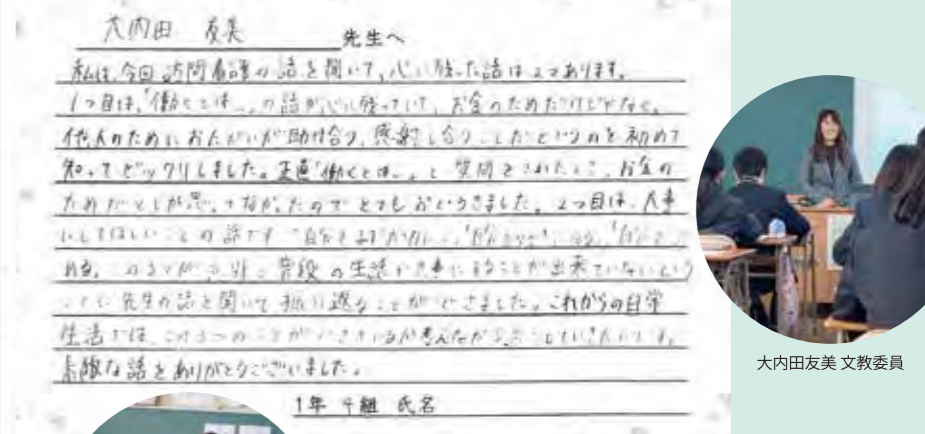 大内田 友美 先生へ
私は、今回訪問看護の話を聞いて、心に残った話は2つあります。
1つ目は、「働くとは…」の話が心に残っていて、お金のためだけじゃなく、
他人のためにおたがいが助け合う、感謝し合うことだというのを初めて
知ってビックリしました。正直「働くとは…」と質問をされたとき、お金の
ためだとしか思ってなかったのでとてもおどろきました。2つ目は、大事
にしてほしいことの話です
める。この3つが 普段の生活で大事にすることが出来ていないという
先生の話を聞いて振り返ることができました。これからの日常
生活では、この3つのことができているか考えながら
素敵な話をありがとうございました。
1年 4組 氏名
大内田友美 文教委員